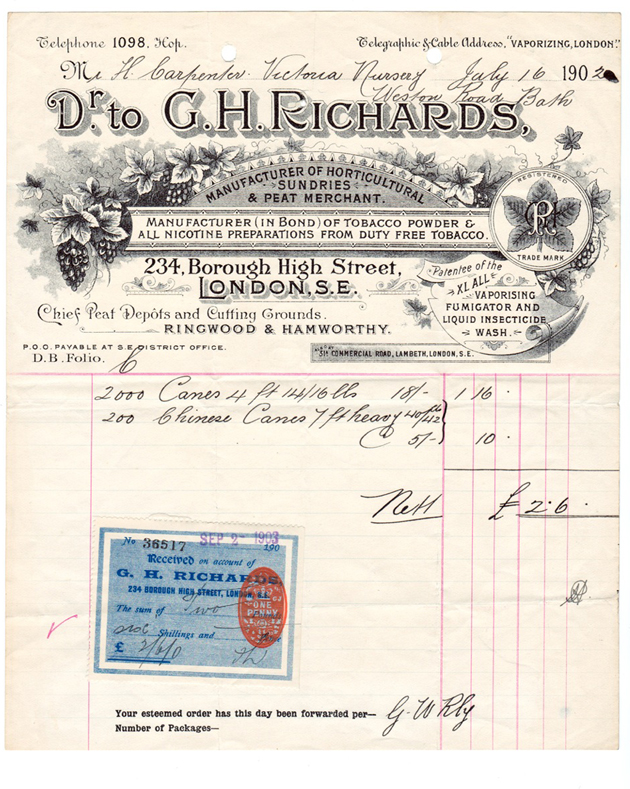 Telephone 1098. Hop.
Telegraphic & Cable Address, "VAPORIZING, LONDON."
Mr H. Carpenter Victoria Nursery July 16 190
Weston Road Bath
Dr. to G. H. RICHARDS,
MANUFACTURER OF HORTICULTURAL
SUNDRIES
& PEAT MERCHANT.
MANUFACTURER (IN BOND) OF TOBACCO POWDER &
ALL NICOTINE PREPARATIONS FROM DUTY FREE TOBACCO.
REGISTERED
TRADE MARK
234, Borough High Street,
LONDON, S.E.
Patentee of the
XL ALL
VAPORISING
FUMIGATOR AND
LIQUID INSECTICIDE
WASH.
Chief Peat Depôts and Cutting Grounds.
RINGWOOD & HAMWORTHY.
P.O.O. PAYABLE AT S.E. DISTRICT OFFICE.
D.B. Folio. 6
COMMERCIAL ROAD, LAMBETH, LONDON, S.E.
2000 Canes 4 ft 14/16 lbs 18/- 1 16 .
200 Chinese Canes 7 ft heavy 40/42
@ 5/- 10 .
Nett £ 2.6 .
No 36517 SEP 2 - 1903
190
Received on account of
G. H. RICHARDS
234 BOROUGH HIGH STREET, LONDON, S.E.
The sum of Two
ONE
PENNY
six Shillings and
£ 2/6/0
Your esteemed order has this day been forwarded per— G. W Rly
Number of Packages—